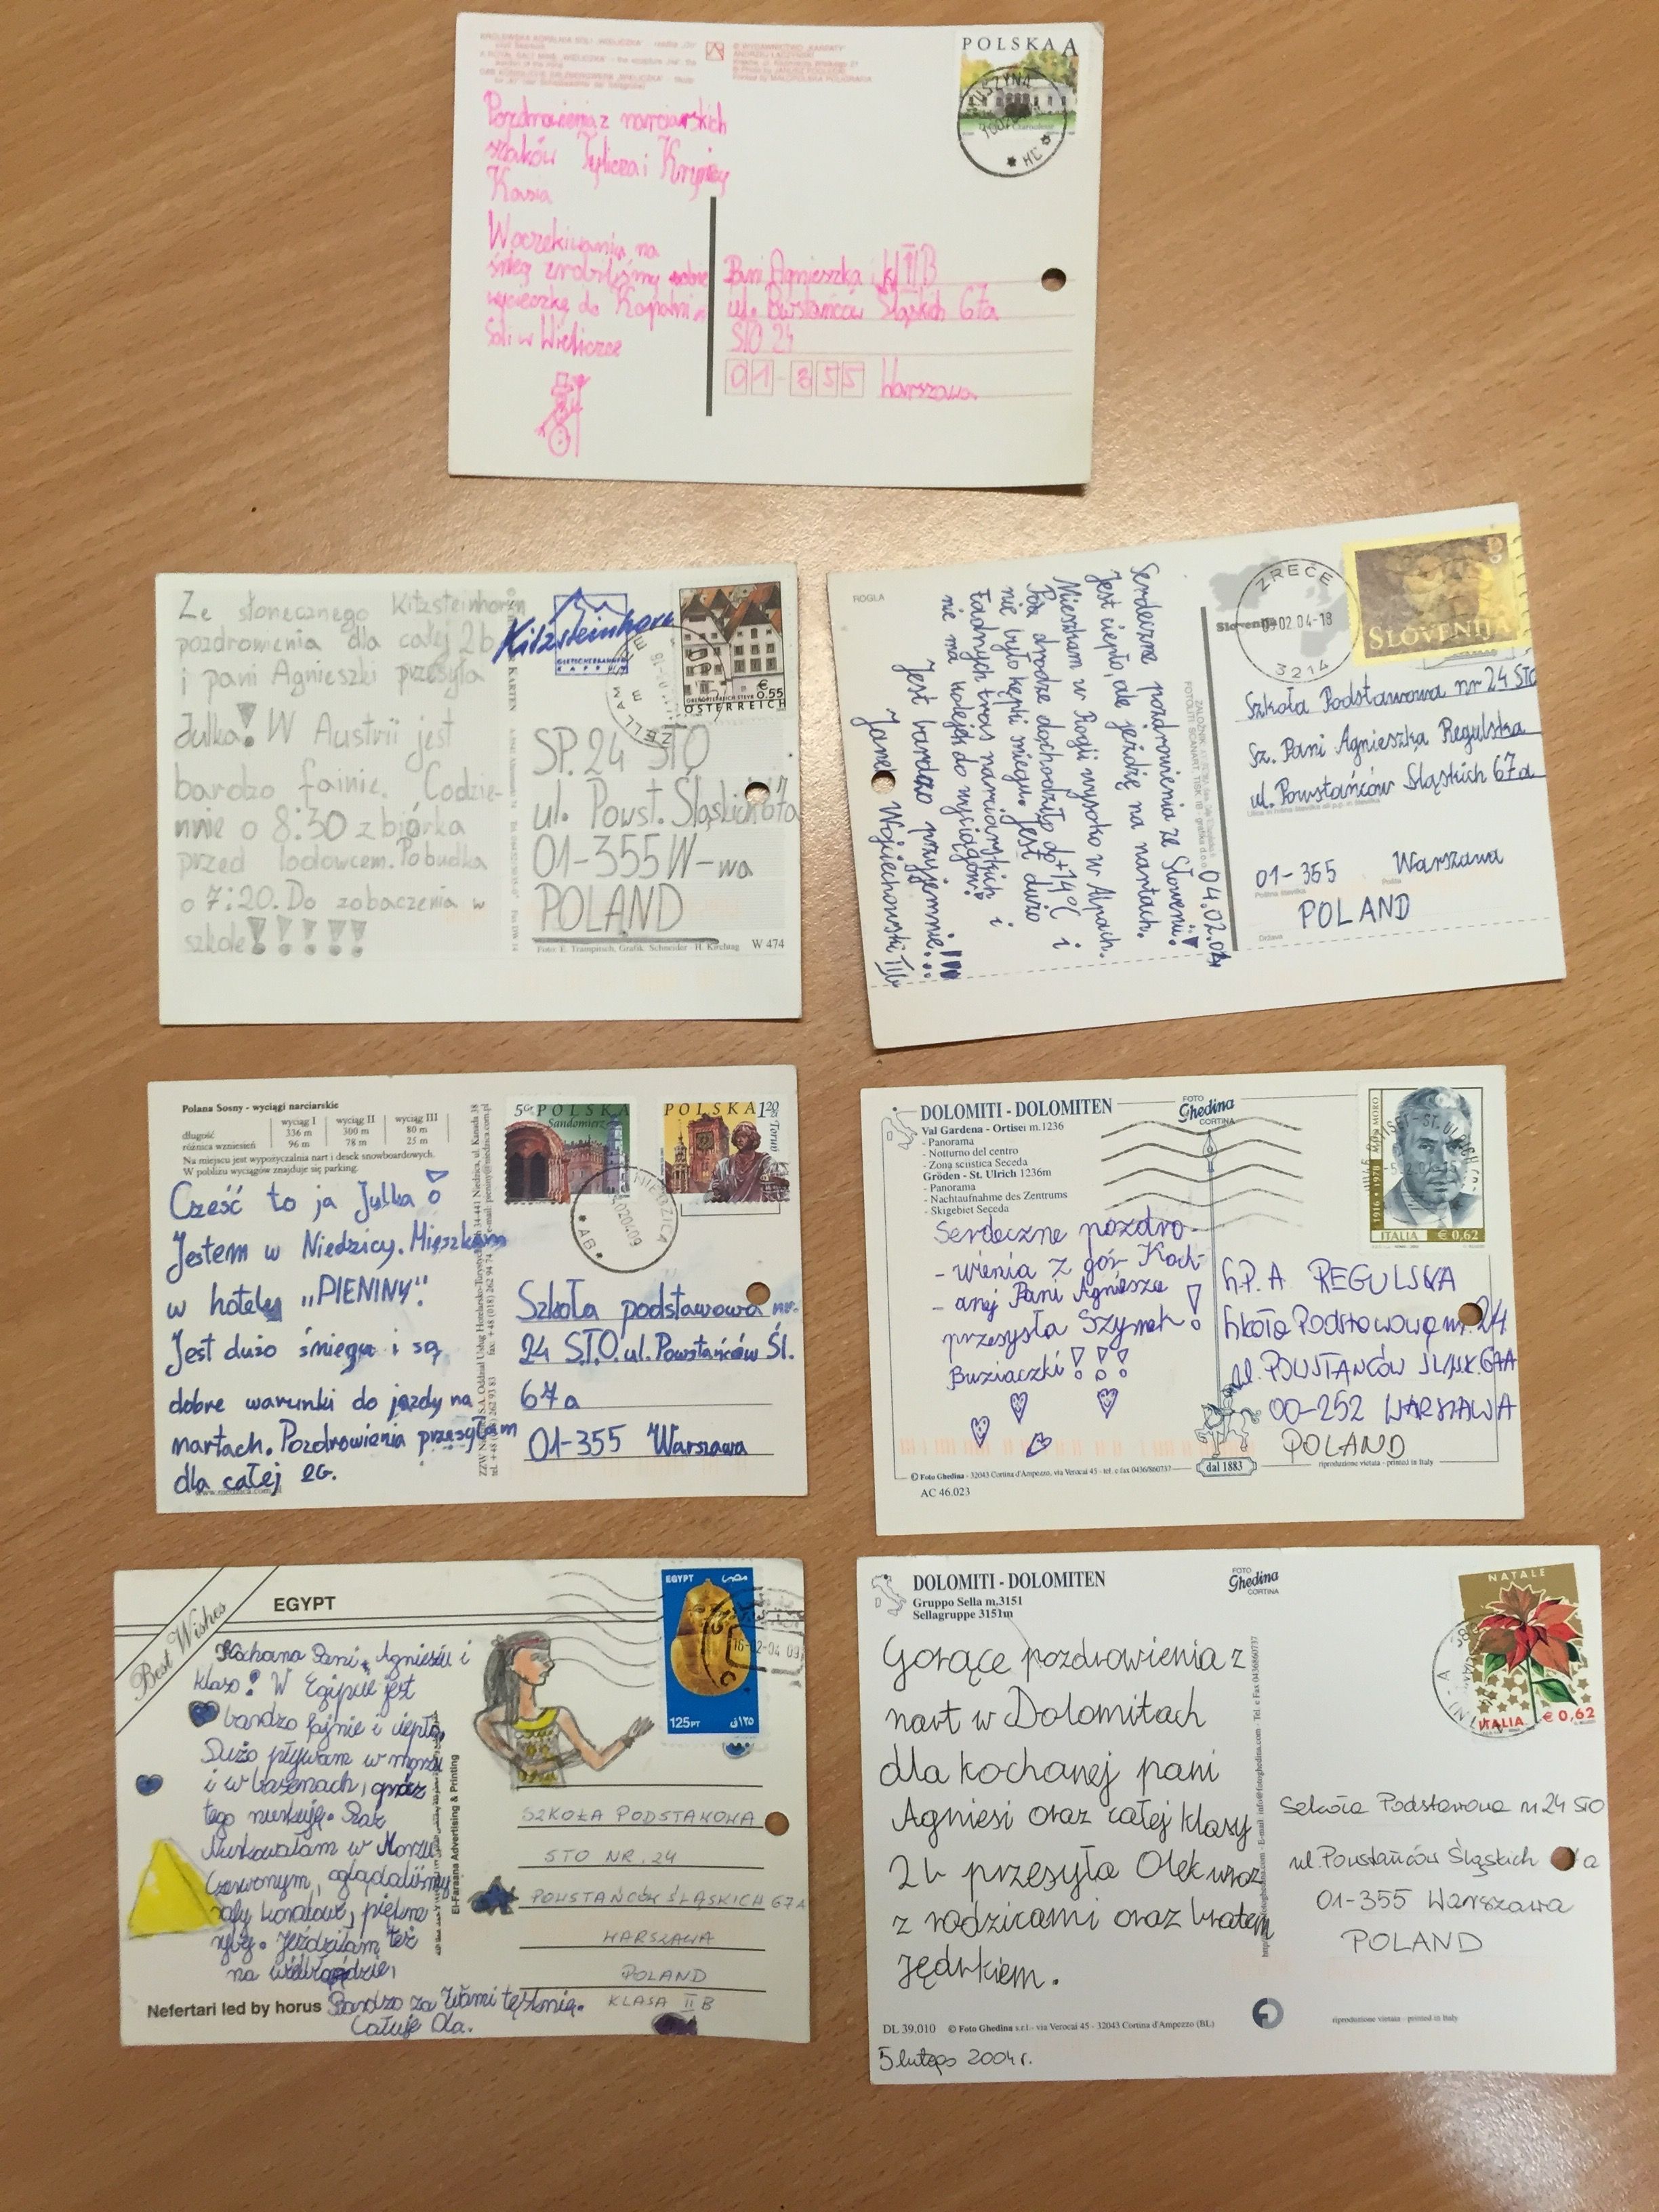 POLSKA A
Pozdrowienia z narciarskich
szlaków Tylicza i Krynicy
Kasia
W oczekiwaniu na
śnieg zrobiliśmy sobie
wycieczkę do Kopalni
Soli w Wieliczce
Pani Agnieszka i kl II B
ul. Powstańców Śląskich 67a
STO 24
01-355 Warszawa
Ze słonecznego Kitzsteinhorn
pozdrowienia dla całej 2b
i pani Agnieszki przesyła
Julka! W Austrii jest
bardzo fajnie. Codzie-
nnie o 8:30 zbiórka
przed lodowcem. Pobudka
o 7:20. Do zobaczenia w
szkole!!!!!
Kitzsteinhorn
GLETSCHERBAHNEN
KAPRUN
€ 0,55
ÖSTERREICH
SP. 24 STO
ul. Powst. Śląskich 67a
01-355 W-wa
POLAND
Foto E. Trampusch, Grafik Schneider - H. Kirchtag W 474
ROGLA
04.02.04
Serdeczne pozdrowienia ze Słowenii!
Jest ciepło, ale jeżdżę na nartach.
Mieszkam w Rogli wysoko w Alpach.
Po drodze dochodziło do +14°C i
nie było kępki śniegu. Jest dużo
ładnych tras narciarskich i
nie ma kolejek do wyciągów!
Jest bardzo przyjemnie...!!!
Janek Wojciechowski IIb
ZREČE
02.04-18
3214
SLOVENIJA
Szkoła Podstawowa nr 24 STO
Sz. Pani Agnieszka Regulska
ul. Powstańców Śląskich 67a
01-355 Warszawa
POLAND
Polana Sosny - wyciągi narciarskie
wyciąg I wyciąg II wyciąg III
długość 336 m 300 m 80 m
różnica wzniesień 96 m 78 m 25 m
Na miejscu jest wypożyczalnia nart i desek snowboardowych.
W pobliżu wyciągów znajduje się parking.
Cześć to ja Julka!
Jestem w Niedzicy. Mieszkam
w hotelu „PIENINY".
Jest dużo śniegu i są
dobre warunki do jazdy na
nartach. Pozdrowienia przesyłam
dla całej 2G.
5 Gr POLSKA
Sandomierz
POLSKA 1,20
Toruń
NIEDZICA
Szkoła podstawowa nr.
24 S.T.O. ul. Powstańców Śl.
67a
01-355 Warszawa
DOLOMITI - DOLOMITEN
Val Gardena - Ortisei m.1236
- Panorama
- Notturno del centro
- Zona sciistica Seceda
Gröden - St. Ulrich 1236m
- Panorama
- Nachtaufnahme des Zentrums
- Skigebiet Seceda
FOTO
Ghedina
CORTINA
Serdeczne pozdro-
- wienia z gór Koch-
- anej Pani Agniesze
przesyła Szymek!
Buziaczki!!!
1916 • 1978 ALDO MORO
ITALIA € 0,62
A. REGULSKA
Szkoła Podstawowa nr. 24
ul. POWSTAŃCÓW ŚLĄSK. 67A
00-252 WARSZAWA
POLAND
dal 1883
© Foto Ghedina - 32043 Cortina d'Ampezzo, via Verocai 45 - tel. e fax 0436/860737
riproduzione vietata - printed in Italy
AC 46.023
Best Wishes
EGYPT
Kochana Pani Agniesiu i
klaso! W Egipcie jest
bardzo fajnie i ciepło.
Dużo pływam w morzu
i w basenach, oprócz
tego nurkuję. Raz
Nurkowałam w Morzu
Czerwonym, oglądaliśmy
rafy koralowe, piękne
ryby. Jeździłam też
na wielbłądzie,
Bardzo za Wami tęsknię.
Całuję Ola.
Nefertari led by horus
El-Faraana Advertising & Printing
EGYPT
125 PT
SZKOŁA PODSTAWOWA
STO NR. 24
POWSTAŃCÓW ŚLĄSKICH 67A
WARSZAWA
POLAND
KLASA II B
DOLOMITI - DOLOMITEN
Gruppo Sella m.3151
Sellagruppe 3151m
FOTO
Ghedina
CORTINA
Gorące pozdrowienia z
nart w Dolomitach
dla kochanej pani
Agniesi oraz całej klasy
2b przesyła Olek wraz
z rodzicami oraz bratem
Jędrkiem.
NATALE
ITALIA € 0,62
Szkoła Podstawowa nr 24 STO
ul. Powstańców Śląskich
01-355 Warszawa
POLAND
DL 39.010 © Foto Ghedina s.r.l.- via Verocai 45 - 32043 Cortina d'Ampezzo (BL)
riproduzione vietata - printed in Italy
5 lutego 2004r.